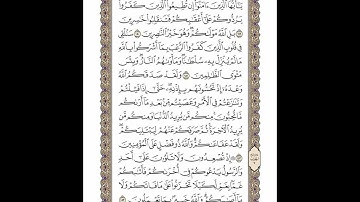 يَٰٓأَيُّهَا ٱلَّذِينَ ءَامَنُوٓا۟ إِن تُطِيعُوا۟ ٱلَّذِينَ كَفَرُوا۟
يَرُدُّوكُمْ عَلَىٰٓ أَعْقَٰبِكُمْ فَتَنقَلِبُوا۟ خَٰسِرِينَ
بَلِ ٱللَّهُ مَوْلَىٰكُمْ وَهُوَ خَيْرُ ٱلنَّٰصِرِينَ سَنُلْقِى
فِى قُلُوبِ ٱلَّذِينَ كَفَرُوا۟ ٱلرُّعْبَ بِمَآ أَشْرَكُوا۟ بِٱللَّهِ
مَا لَمْ يُنَزِّلْ بِهِۦ سُلْطَٰنًا وَمَأْوَىٰهُمُ ٱلنَّارُ وَبِئْسَ
مَثْوَى ٱلظَّٰلِمِينَ وَلَقَدْ صَدَقَكُمُ ٱللَّهُ
وَعْدَهُۥٓ إِذْ تَحُسُّونَهُم بِإِذْنِهِۦ حَتَّىٰٓ إِذَا فَشِلْتُمْ
وَتَنَٰزَعْتُمْ فِى ٱلْأَمْرِ وَعَصَيْتُم مِّنۢ بَعْدِ مَآ أَرَىٰكُم
مَّا تُحِبُّونَ مِنكُم مَّن يُرِيدُ ٱلدُّنْيَا وَمِنكُم مَّن
يُرِيدُ ٱلْءَاخِرَةَ ثُمَّ صَرَفَكُمْ عَنْهُمْ لِيَبْتَلِيَكُمْ
وَلَقَدْ عَفَا عَنكُمْ وَٱللَّهُ ذُو فَضْلٍ عَلَى ٱلْمُؤْمِنِينَ
إِذْ تُصْعِدُونَ وَلَا تَلْوُۥنَ عَلَىٰٓ أَحَدٍ
وَٱلرَّسُولُ يَدْعُوكُمْ فِىٓ أُخْرَىٰكُمْ فَأَثَٰبَكُمْ
غَمًّۢا بِغَمٍّ لِّكَيْلَا تَحْزَنُوا۟ عَلَىٰ مَا فَاتَكُمْ وَلَا
مَآ أَصَٰبَكُمْ وَٱللَّهُ خَبِيرٌۢ بِمَا تَعْمَلُونَ